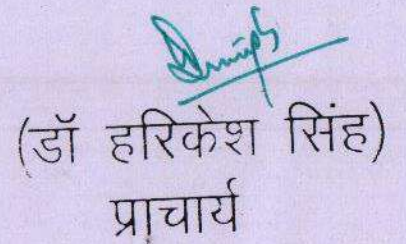 (डॉ हरिकेश सिंह)
प्राचार्य